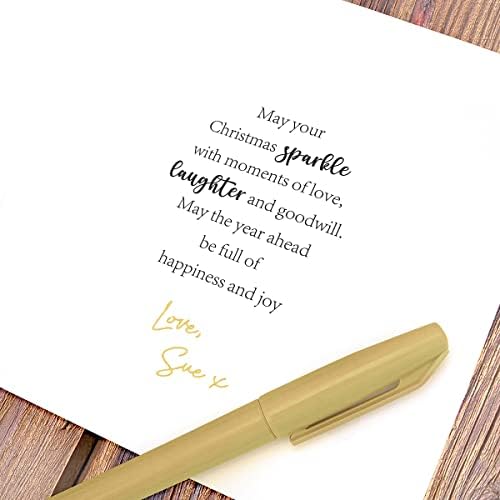 May your
Christmas sparkle
with moments of love,
laughter and goodwill.
May the year ahead
be full of
happiness and joy
Love,
Sue x